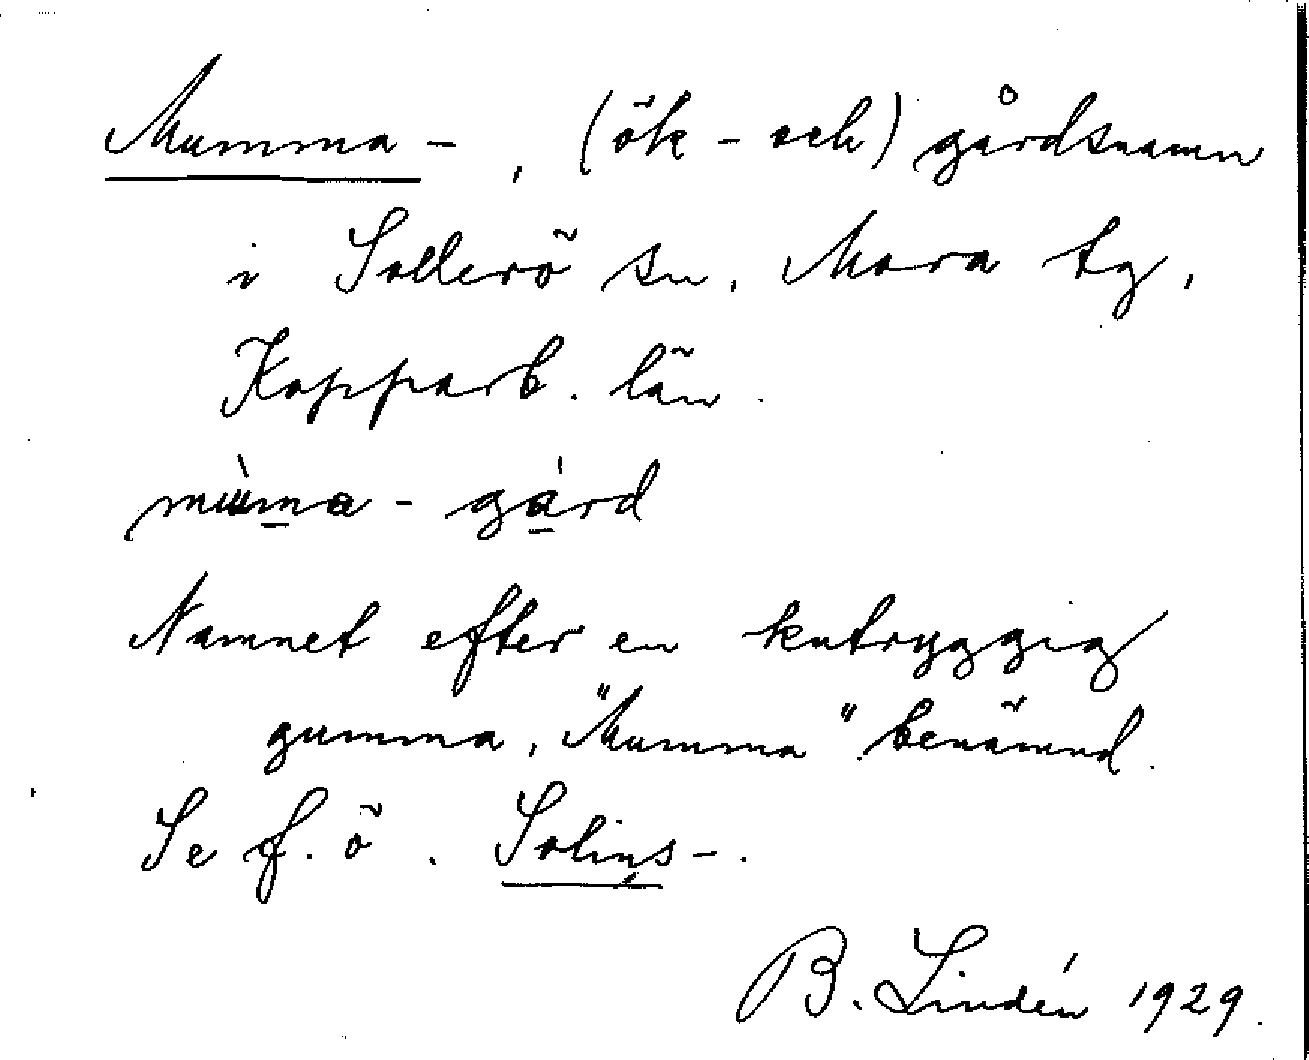 Mumma-, (ök- och) gårdsnamn
i Sollerö sn, Mora tg,
Kopparb. län.
mùma-gárd
Namnet efter en kutryggig
gumma, "Mumma" benämnd.
Se f.ö. Solins-.
B. Lindén 1929.